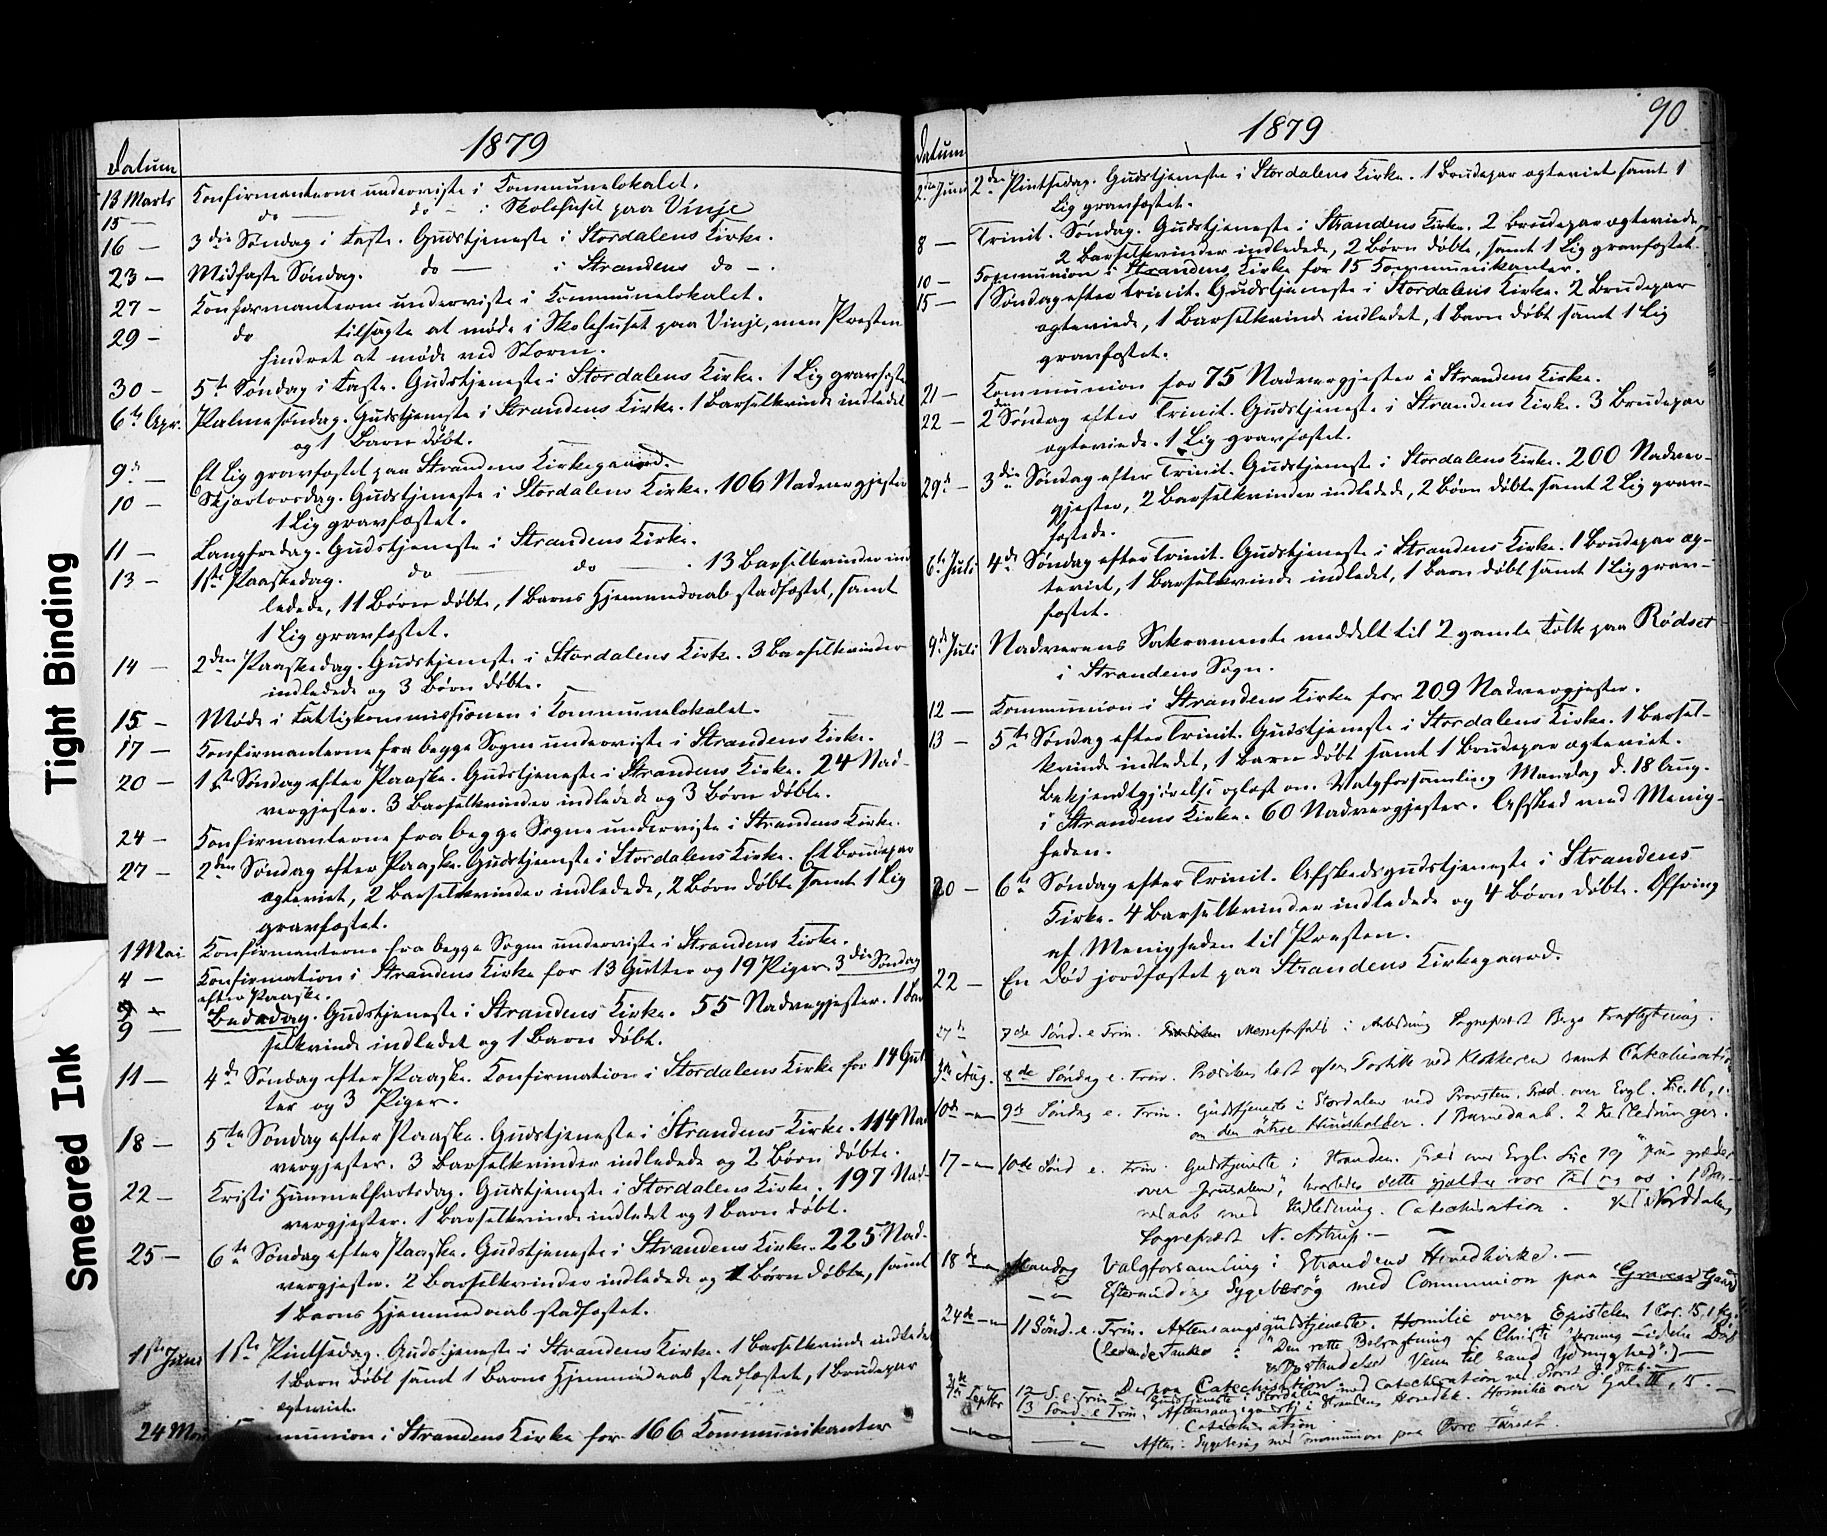 Tight Binding
Smeared Ink
1879
Datum
13 Marts Konfirmanterne underviste i Kommunelokalet.
15 — do — do — i Skolehuset paa Vinje
16 — 3die Søndag i Faste. Gudstjeneste i Stordalens Kirke.
23 — Midfaste Søndag. do — i Strandens do —.
27 — Konfirmanterne underviste i Kommunelokalet.
29 — do tilsagte at møde i Skolehuset paa Vinje, men Presten
hindret at møde ved Storm.
30 — 5te Søndag i Faste. Gudstjeneste i Stordalens Kirke. 1 Lig gravfæstet
6te Apr. Palmesøndag. Gudstjeneste i Strandens Kirke. 1 Barselkvinde indledet
og 1 Barn døbt.
9de — Et Lig gravfæstet paa Strandens Kirkegaard.
10 — Skjærtorsdag. Gudstjeneste i Stordalens Kirke. 106 Nadvergjester
1 Lig gravfæstet.
11 — Langfredag. Gudstjeneste i Strandens Kirke.
13 — 1ste Paaskedag. do — do — . 13 Barselkvinder ind
ledede, 11 Børn døbte, 1 Barns Hjemmedaab stadfæstet, samt
1 Lig gravfæstet.
14 — 2den Paaskedag. Gudstjeneste i Stordalens Kirke. 3 Barselkvinder
indledede og 3 Børn døbte.
15 — Møde i Fattigkommissionen i Kommunelokalet.
17 — Konfirmanterne fra begge Sogne underviste i Strandens Kirke.
20 — 1ste Søndag efter Paaske. Gudstjeneste i Strandens Kirke. 24 Nad-
vergjester. 3 Barselkvinder indledede og 3 Børn døbte.
24 — Konfirmanterne fra begge Sogne underviste i Strandens Kirke.
27 — 2den Søndag efter Paaske. Gudstjeneste i Stordalens Kirke. Et Brudepar
ægteviet, 2 Barselkvinder indledede, 2 Børn døbte samt 1 Lig
gravfæstet.
1 Mai Konfirmanterne fra begge Sogne underviste i Strandens Kirke.
4 — Konfirmation i Strandens Kirke for 13 Gutter og 19 Piger. 3die Søndag
efter Paaske.
9 — Bededag. Gudstjeneste i Strandens Kirke. 55 Nadvergjester. 1 Bar
selkvinde indledet og 1 Barn døbt.
11 — 4de Søndag efter Paaske. Konfirmation i Stordalens Kirke for 14 Gut
ter og 3 Piger.
18 — 5te Søndag efter Paaske. Gudstjeneste i Strandens Kirke. 114 Nad
vergjester. 3 Barselkvinder indledede og 2 Børn døbte.
22 — Kristi Himmelfartsdag. Gudstjeneste i Stordalens Kirke. 197 Nad-
vergjester. 1 Barselkvinde indledet og 1 Barn døbt.
25 — 6te Søndag efter Paaske. Gudstjeneste i Strandens Kirke. 225 Nad-
vergjester. 2 Barselkvinder indledede og Børn døbte, samt
1 Barns Hjemmedaab stadfæstet.
1ste Juni 1ste Pintsedag. Gudstjeneste i Strandens Kirke. 1 Barselkvinde indledet
1 Barn døbt samt 1 Barns Hjemmedaab stadfæstet, 1 Brudepar
ægteviet.
24 Mai Kommunion i Strandens Kirke for 166 Kommunikanter
1879
90
Datum
2den Juni 2den Pintsedag. Gudstjeneste i Stordalens Kirke. 1 Brudepar ægteviet samt 1
Lig gravfæstet.
8 — Trinit. Søndag. Gudstjeneste i Strandens Kirke. 2 Brudepar ægteviede,
2 Barselkvinder indledede, 2 Børn døbte, samt 1 Lig gravfæstet.
10 — Kommunion i Strandens Kirke for 15 Kommunikanter.
15 — 1 Søndag efter Trinit. Gudstjeneste i Stordalens Kirke. 2 Brudepar
ægteviede, 1 Barselkvinde indledet, 1 Barn døbt samt 1 Lig
gravfæstet.
21 — Kommunion for 75 Nadvergjester i Strandens Kirke.
22 — 2den Søndag efter Trinit. Gudstjeneste i Strandens Kirke. 3 Brudepar
ægteviede. 1 Lig gravfæstet.
29de — 3die Søndag efter Trinit. Gudstjeneste i Stordalens Kirke. 200 Nadver-
gjester, 2 Barselkvinder indledede, 2 Børn døbte samt 2 Lig grav-
fæstede.
6te Juli 4de Søndag efter Trinit. Gudstjeneste i Strandens Kirke. 1 Brudepar æg-
teviet, 1 Barselkvinde indledet, 1 Barn døbt samt 1 Lig grav-
fæstet.
9de Juli Nadverens Sakramente meddelt til 2 gamle Folk paa Rødset
i Strandens Sogn.
12 — Kommunion i Strandens Kirke for 209 Nadvergjester.
13 — 5te Søndag efter Trinit. Gudstjeneste i Stordalens Kirke. 1 Barsel-
kvinde indledet, 1 Barn døbt samt 1 Brudepar ægteviet.
Bekjendtgjørelse oplæst om Valgforsamling Mandag d. 18 Aug.
i Strandens Kirke. 60 Nadvergjester. Afsked med Menig-
heden.
20 — 6te Søndag efter Trinit. Afskedsgudstjeneste i Strandens
Kirke. 4 Barselkvinder indledede og 4 Børn døbte. Offring
af Menigheden til Presten.
22 — En Død jordfæstet paa Strandens Kirkegaard.
27de 7de Sønd. e. Trin. Messeforfald i Anledning Sognepræst Bergs Fraflytning.
3die Aug. 8de Søndag e. Trin. Præken læst af Postille ved Klokkeren samt Catechisation
10de — 9de Søndag e. Trin. Gudstjeneste i Stordalen ved Provsten. Præd. over Evgl. Luc. 16, 1.
om den utroe Huusholder. 1 Barnedaab. 2 Jordfæstninger.
17 — 10de Sønd e. Trin. Gudstjeneste i Stranden. Præd over Evgl. Luc 19
over Jerusalem", hvorledes dette gjælder vor Tid og os. 1 Bar-
nedaab med Indledning. Catechisation. Norddalens
Sognepræst N. Astrup. —
18de — Mandag Valgforsamling i Strandens Hovedkirke. —
— Eftermiddag Sygebesøg med Communion paa Gaard
24de — 11 Sønd. e. Trin. Aftensangsgudstjeneste. Homilie over Epistelen 1 Cor. 15,
(ledende Tanke: "Den rette Betragtning af Christi Død
Veien til sand Ydmyghed".) —
Derpaa Catechisation
Septbr 12 S. e. Trin. Gudstjeneste i Stordalen med Catechisation
13 Sønd e Trin. Aftensang i Strandens Hovedk. Homilie over Gal. III, 15. —
Catechisation
— Aften: Sygebesøg med Communion paa Øvre